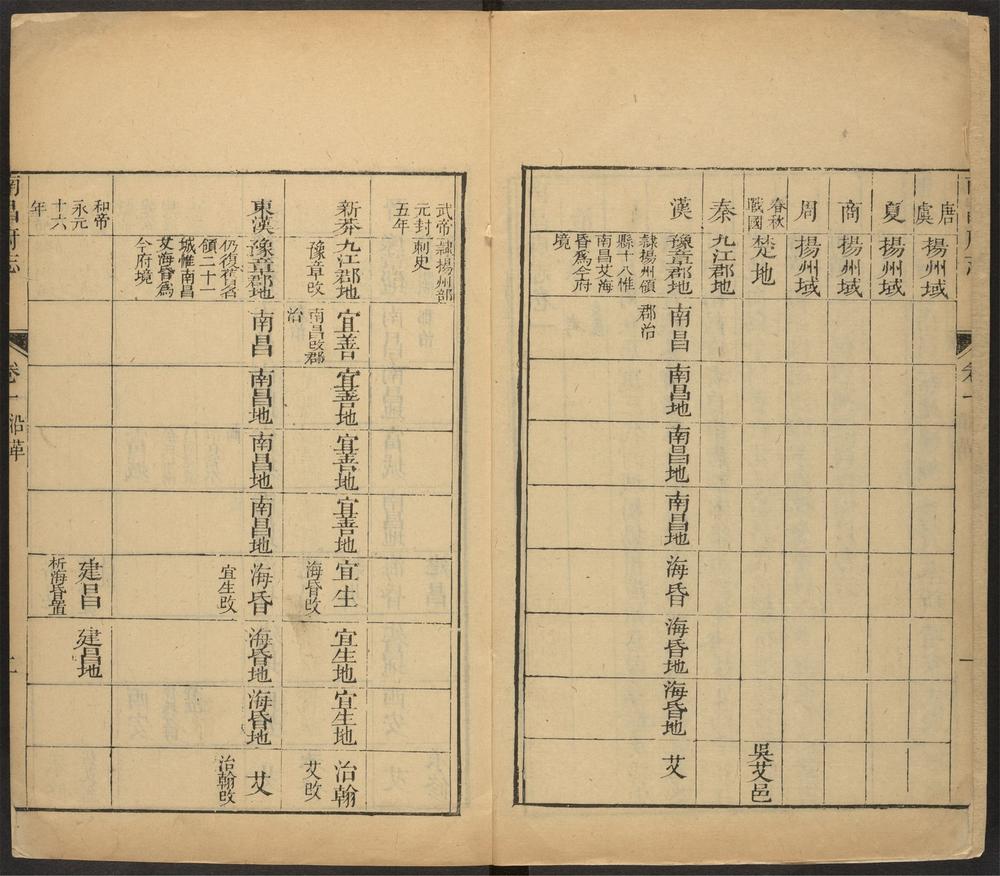 唐虞
揚州域
夏
揚州域
商
揚州域
周
揚州域
春秋戰國
楚地
吳艾邑
秦
九江郡地
漢
豫章郡地
隸揚州領
縣十八惟
南昌艾海
昏爲今府
境
南昌
郡治
南昌地
南昌地
南昌地
海昏
海昏地
海昏地
艾
卷一
一
武帝
元封
五年
隸揚州部
刺史
新莽
九江郡地
豫章改
宜善
南昌改郡
治
宜善地
宜善地
宜善地
宜生
海昏改
宜生地
宜生地
治翰
艾改
東漢
豫章郡地
仍復舊名
領二十一
城惟南昌
艾海昏爲
今府境
南昌
南昌地
南昌地
南昌地
海昏
宜生改
海昏地
海昏地
艾
治翰改
和帝
永元
十六
年
建昌
析海昏置
建昌地
南昌府志
卷一
沿革
二